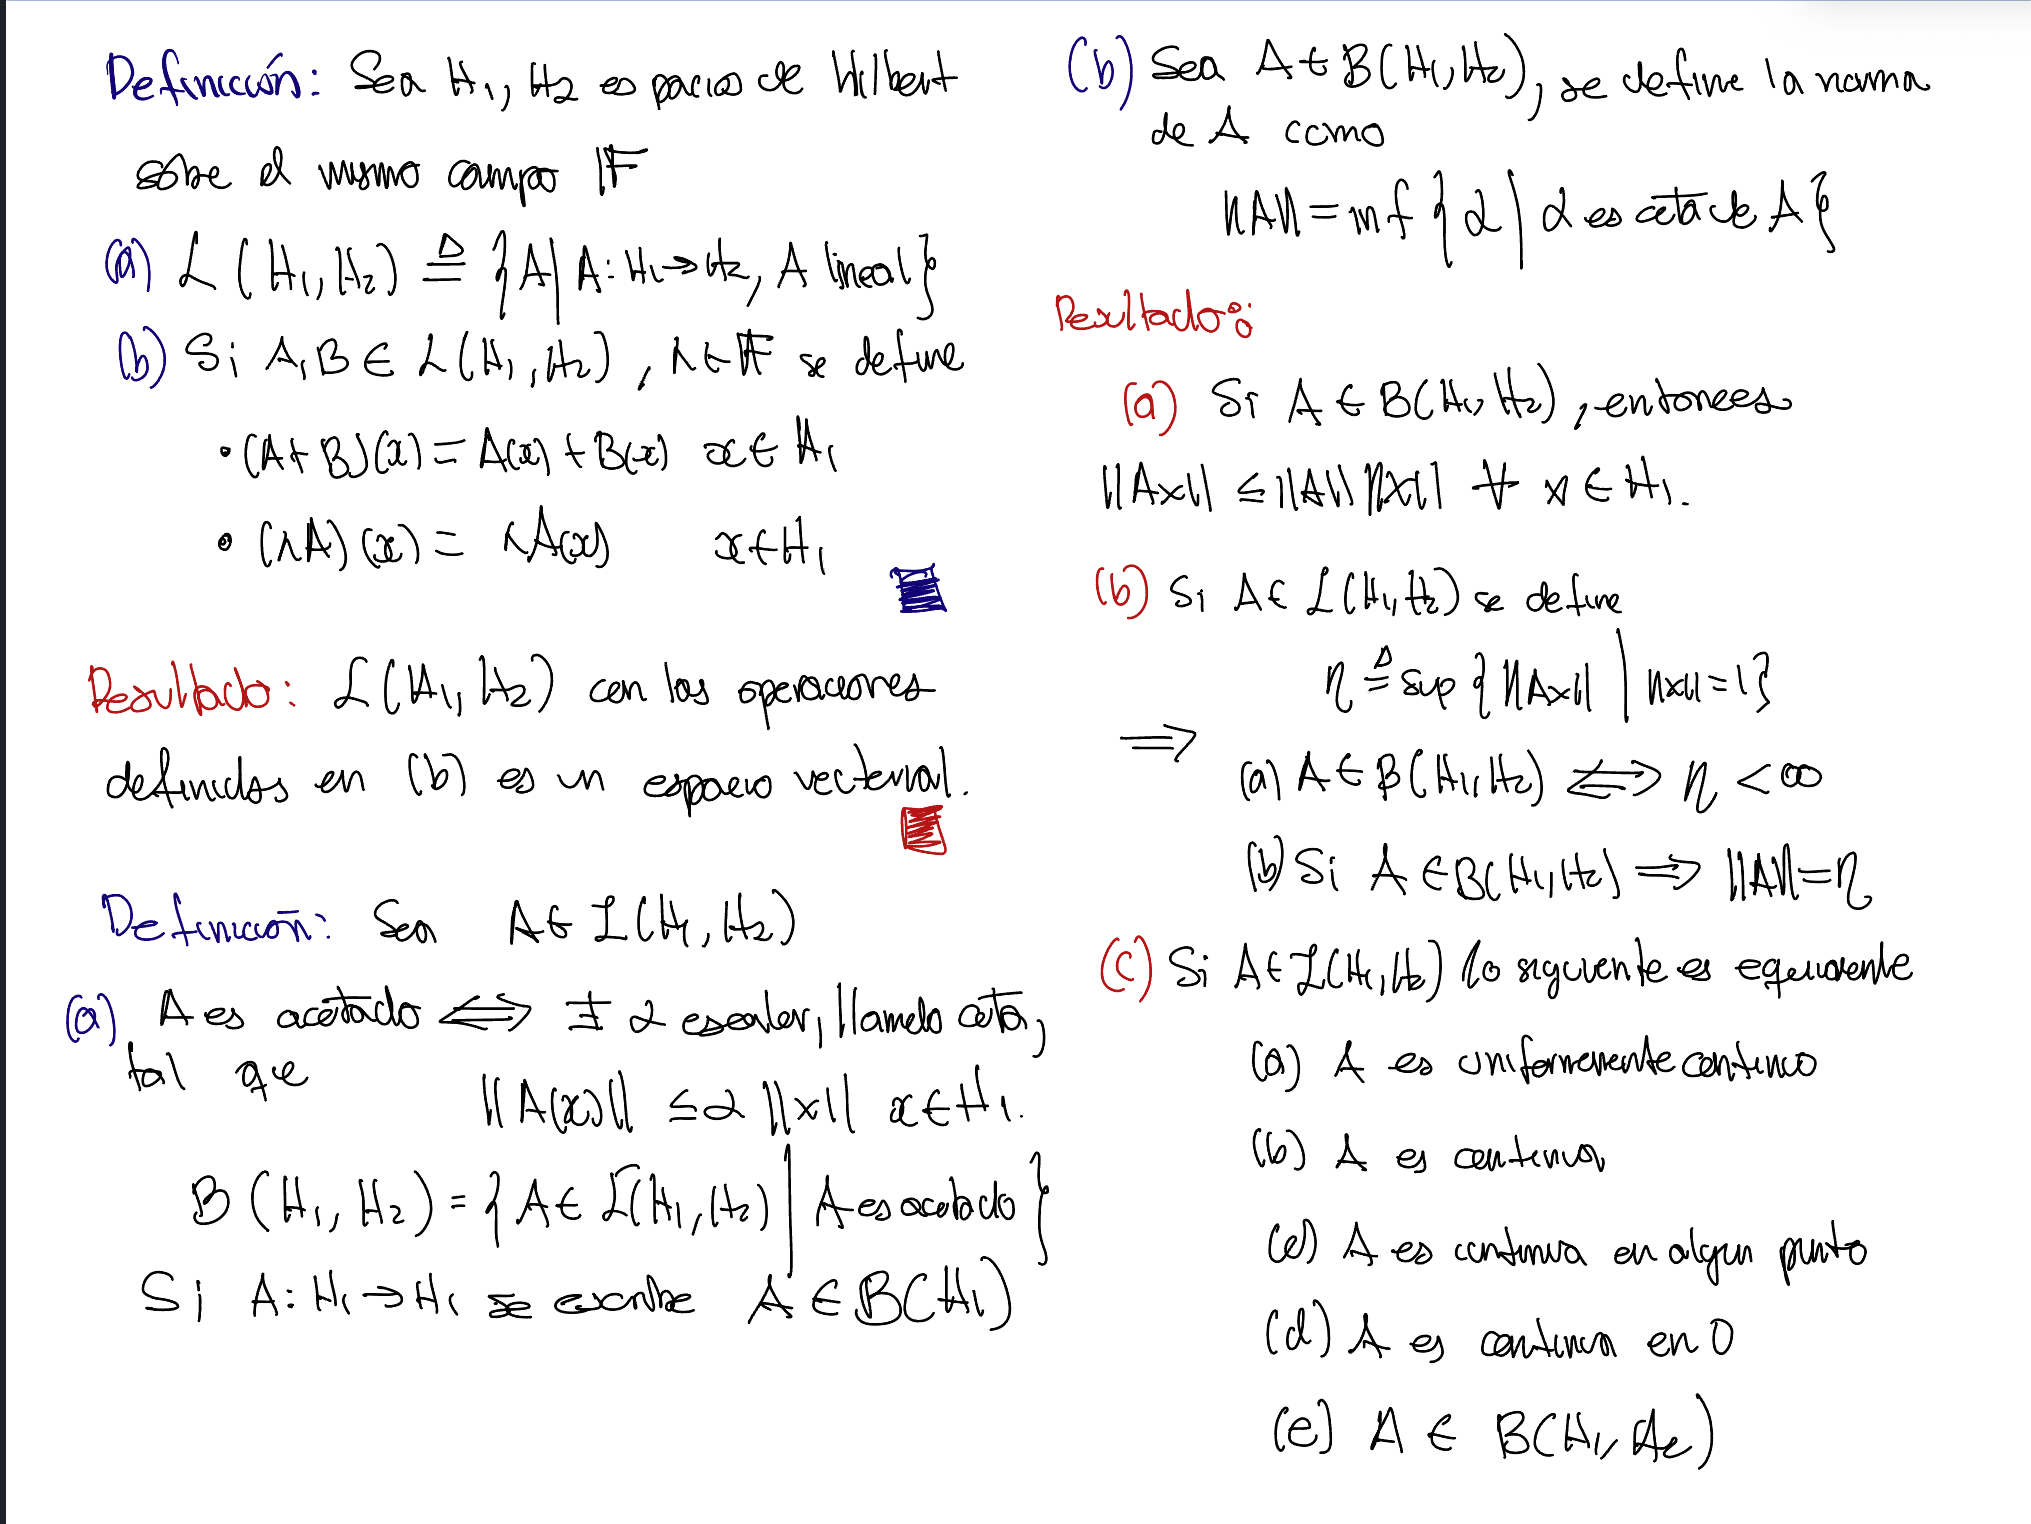 Definición: Sea H₁, H₂ espacios de Hilbert
sobre el mismo campo 𝔽
(a) ℒ(H₁,H₂) ≜ {A | A: H₁→H₂, A lineal}
(b) Si A,B ∈ ℒ(H₁,H₂), λ∈𝔽 se define
• (A+B)(x) = A(x)+B(x) x∈H₁
• (λA)(x) = λA(x) x∈H₁
Resultado: ℒ(H₁,H₂) con las operaciones
definidas en (b) es un espacio vectorial.
Definición: Sea A∈ℒ(H₁,H₂)
(a) A es acotado ⟺ ∃ α escalar, llamelo cota,
tal que
||A(x)|| ≤ α ||x|| x∈H₁.
B(H₁,H₂) = {A∈ℒ(H₁,H₂) | A es acotado}
Si A: H₁→H₁ se escribe A∈B(H₁)
(b) Sea A∈B(H₁,H₂), se define la norma
de A como
||A|| = inf {α | α es cota de A}
Resultado:
(a) Si A∈B(H₁,H₂), entonces
||Ax|| ≤ ||A|| ||x|| ∀ x∈H₁.
(b) Si A∈ℒ(H₁,H₂) se define
η ≜ sup {||Ax|| | ||x||=1}
⟹
(a) A∈B(H₁,H₂) ⟺ η < ∞
(b) Si A∈B(H₁,H₂) ⟹ ||A||=η
(c) Si A∈ℒ(H₁,H₂) lo siguiente es equivalente
(a) A es uniformemente continuo
(b) A es continua
(c) A es continua en algun punto
(d) A es continua en 0
(e) A ∈ B(H₁,H₂)